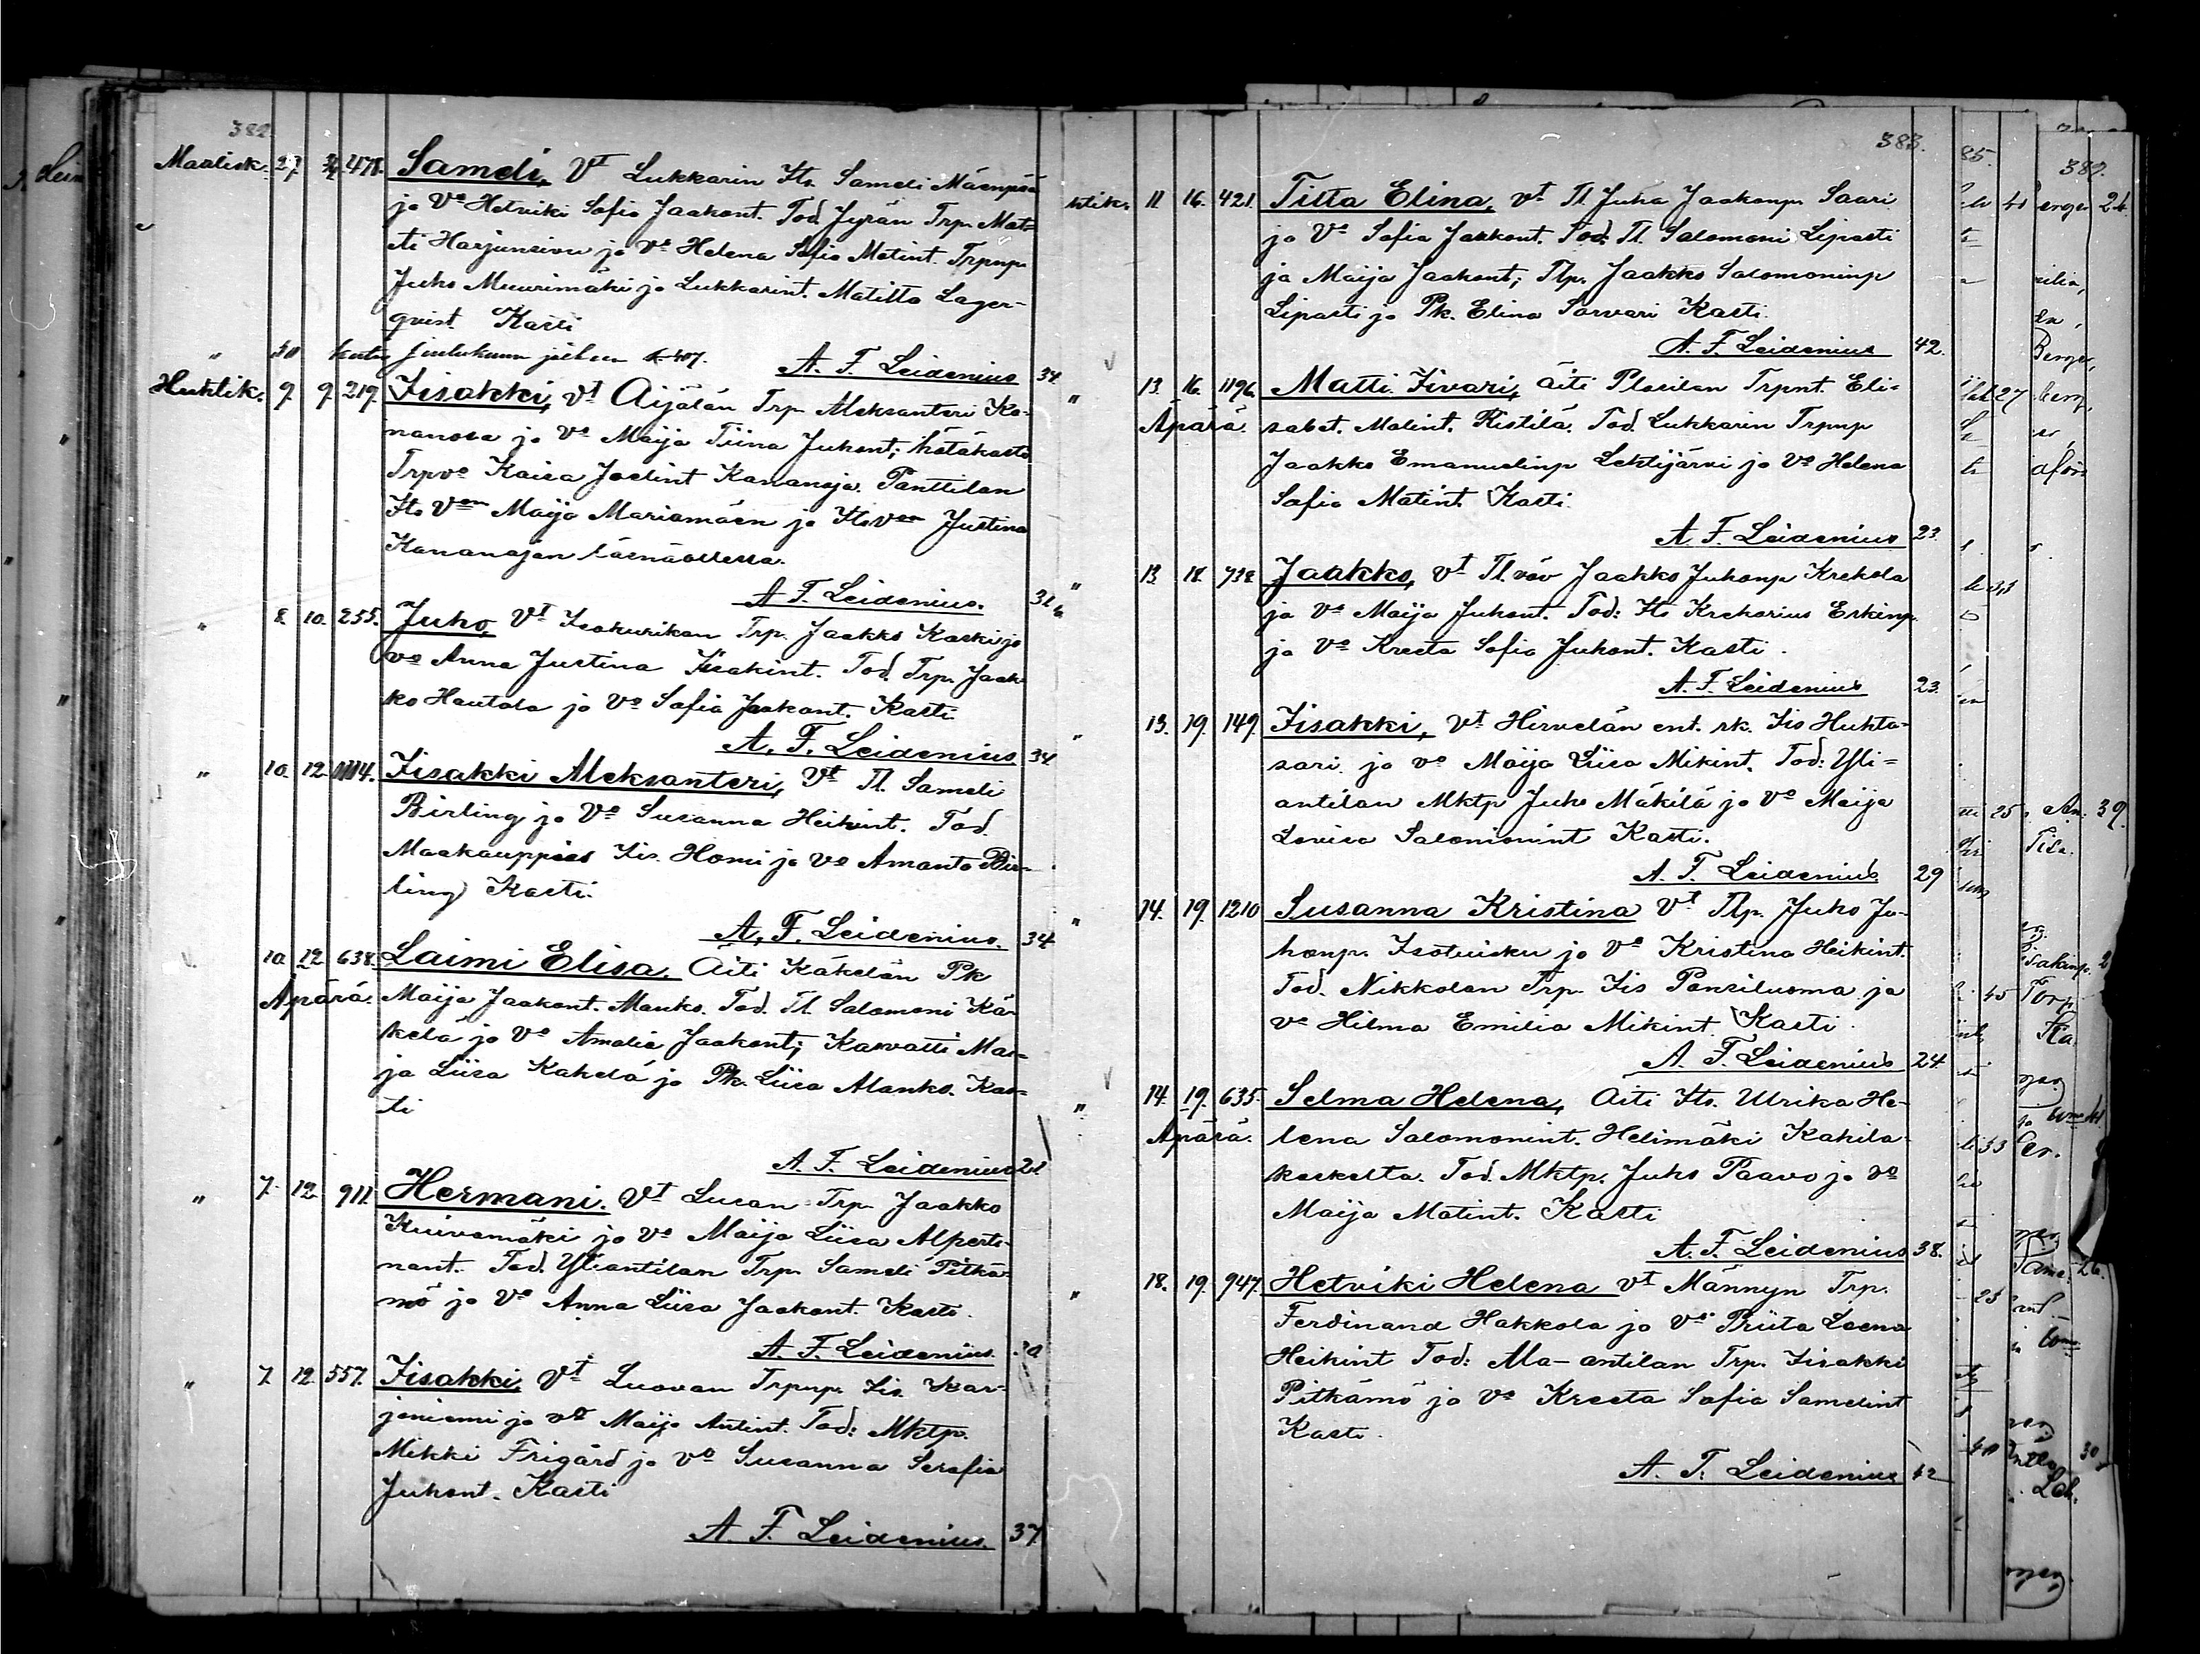 382.
Maalisk. 27. 478. Sameli, Vt Lukkarin Its. Sameli Mäenpää
ja Vo Hetviki Sofia Jaakont. Tod. Jyrän Trp. Mat-
ti Harjunsivu ja Vo Helena Sofia Matint. Trpnp.
Juho Muurimäki ja Lukkarint. Matilta Lager-
qvist. Kasti
" 30 joulukuun jälkeen s. 407. A. F. Leidenius 34.
Huhtik. 9. 9. 219. Iisakki, Vt Äijälän Trp. Aleksanteri Ka-
nanoja ja Vo Maija Tiina Juhont; hätäkaste
Trpvo Kaisa Joelint Kananoja. Panttilan
Its Von Maija Mariamäen ja Itsvon Justina
Kananojan läsnäollessa.
A. F. Leidenius. 31
" 8. 10. 255. Juho, Vt Isokurikan Trp. Jaakko Kaski ja
vo Anna Justina Iisakint. Tod. Trp. Jaak-
ko Hautala ja Vo Sofia Jaakont. Kasti
A. F. Leidenius 34
" 10. 12. 1114. Iisakki Aleksanteri, Vt Tl. Sameli
Birling ja Vo Susanna Heikint. Tod.
Maakauppias Iis. Homi ja Vo Amanta Bir-
ling) Kasti.
A. F. Leidenius. 34
10. 12 638. Laimi Elisa. Äiti Käkelän Pk
Äpärä. Maija Jaakont. Manks. Tod. Tl. Salomoni Kä-
kelä ja Vo Amalia Jaakont; Kasvatti Mai-
ja Liisa Kakelä ja Pk. Liisa Alanko. Kas-
ti
A. F. Leidenius 21
" 7. 12. 911. Hermani. Vt Lucan Trp. Jaakko
Kuivamäki ja vo Maija Liisa Alperti-
nant. Tod. Yliantilan Trp. Sameli Pitkä-
mö ja Vo Anna Liisa Jaakont. Kasti.
A. F. Leidenius.
" 7. 12. 557. Iisakki, Vt Luovan Trpnp. Iis. Kar-
joniemi ja vo Maija Antint. Tod: Mktp.
Mikki Frigård ja Vo Susanna Serafia
Juhont. Kasti
A. F. Leidenius. 37.
383.
11. 16. 421. Tilta Elina, Vt Tl. Juha Jaakonp. Saari
ja Vo Sofia Jaakont. Tod: Tl. Salomoni Lipasti
ja Maija Jaakont; Tlp. Jaakko Salomoninp
Lipasti ja Pk. Elina Sarvari Kasti.
A. F. Leidenius 42.
" 13. 16. 1196. Matti Iivari, Äiti Plosilan Trpnt. Eli-
Äpärä. sabet. Malint. Ristilä. Tod. Lukkarin Trpnp
Jaakko Emanuelinp Lehtijärvi ja Vo Helena
Sofia Matint. Kasti.
A. F. Leidenius 23.
" 13. 18. 738. Jaakko, Vt Tl. väv Jaakko Juhonp Krekola
ja Vo Maija Juhont. Tod: Its Krekorius Erkinp.
ja Vo Kreeta Sofia Juhont. Kasti.
A. F. Leidenius 23.
" 13. 19. 149. Iisakki, Vt Hirvelän ent. rk. Iis Huhta-
sari ja vo Maija Liisa Mikint. Tod: Yli=
antilan Mktp Juho Mäkilä ja Vo Maija
Lovisa Salomonint Kasti.
A. F. Leidenius 29
" 14. 19. 1210 Susanna Kristina Vt Tlp. Juho Ju-
honp. Isotuisku ja Vo Kristina Heikint.
Tod. Nikkolan Trp. Iis Pansiluoma ja
vo Hilma Emilia Mikint. Kasti.
A. F. Leidenius 24.
" 14. 19. 635. Selma Helena, Äiti Its. Ulrika He-
Äpärä. lena Salomonint. Helimäki Kahila-
koskelta. Tod. Mktp. Juho Paavo ja vo
Maija Matint. Kasti
A. F. Leidenius 38.
" 18. 19. 947. Hetviki Helena Vt Männyn Trp.
Ferdinand Hakkola ja Vo Priita Leena
Heikint Tod: Ala-antilan Trp. Iisakki
Pitkämö ja Vo Kreeta Sofia Samelint
Kasti.
A. F. Leidenius 42